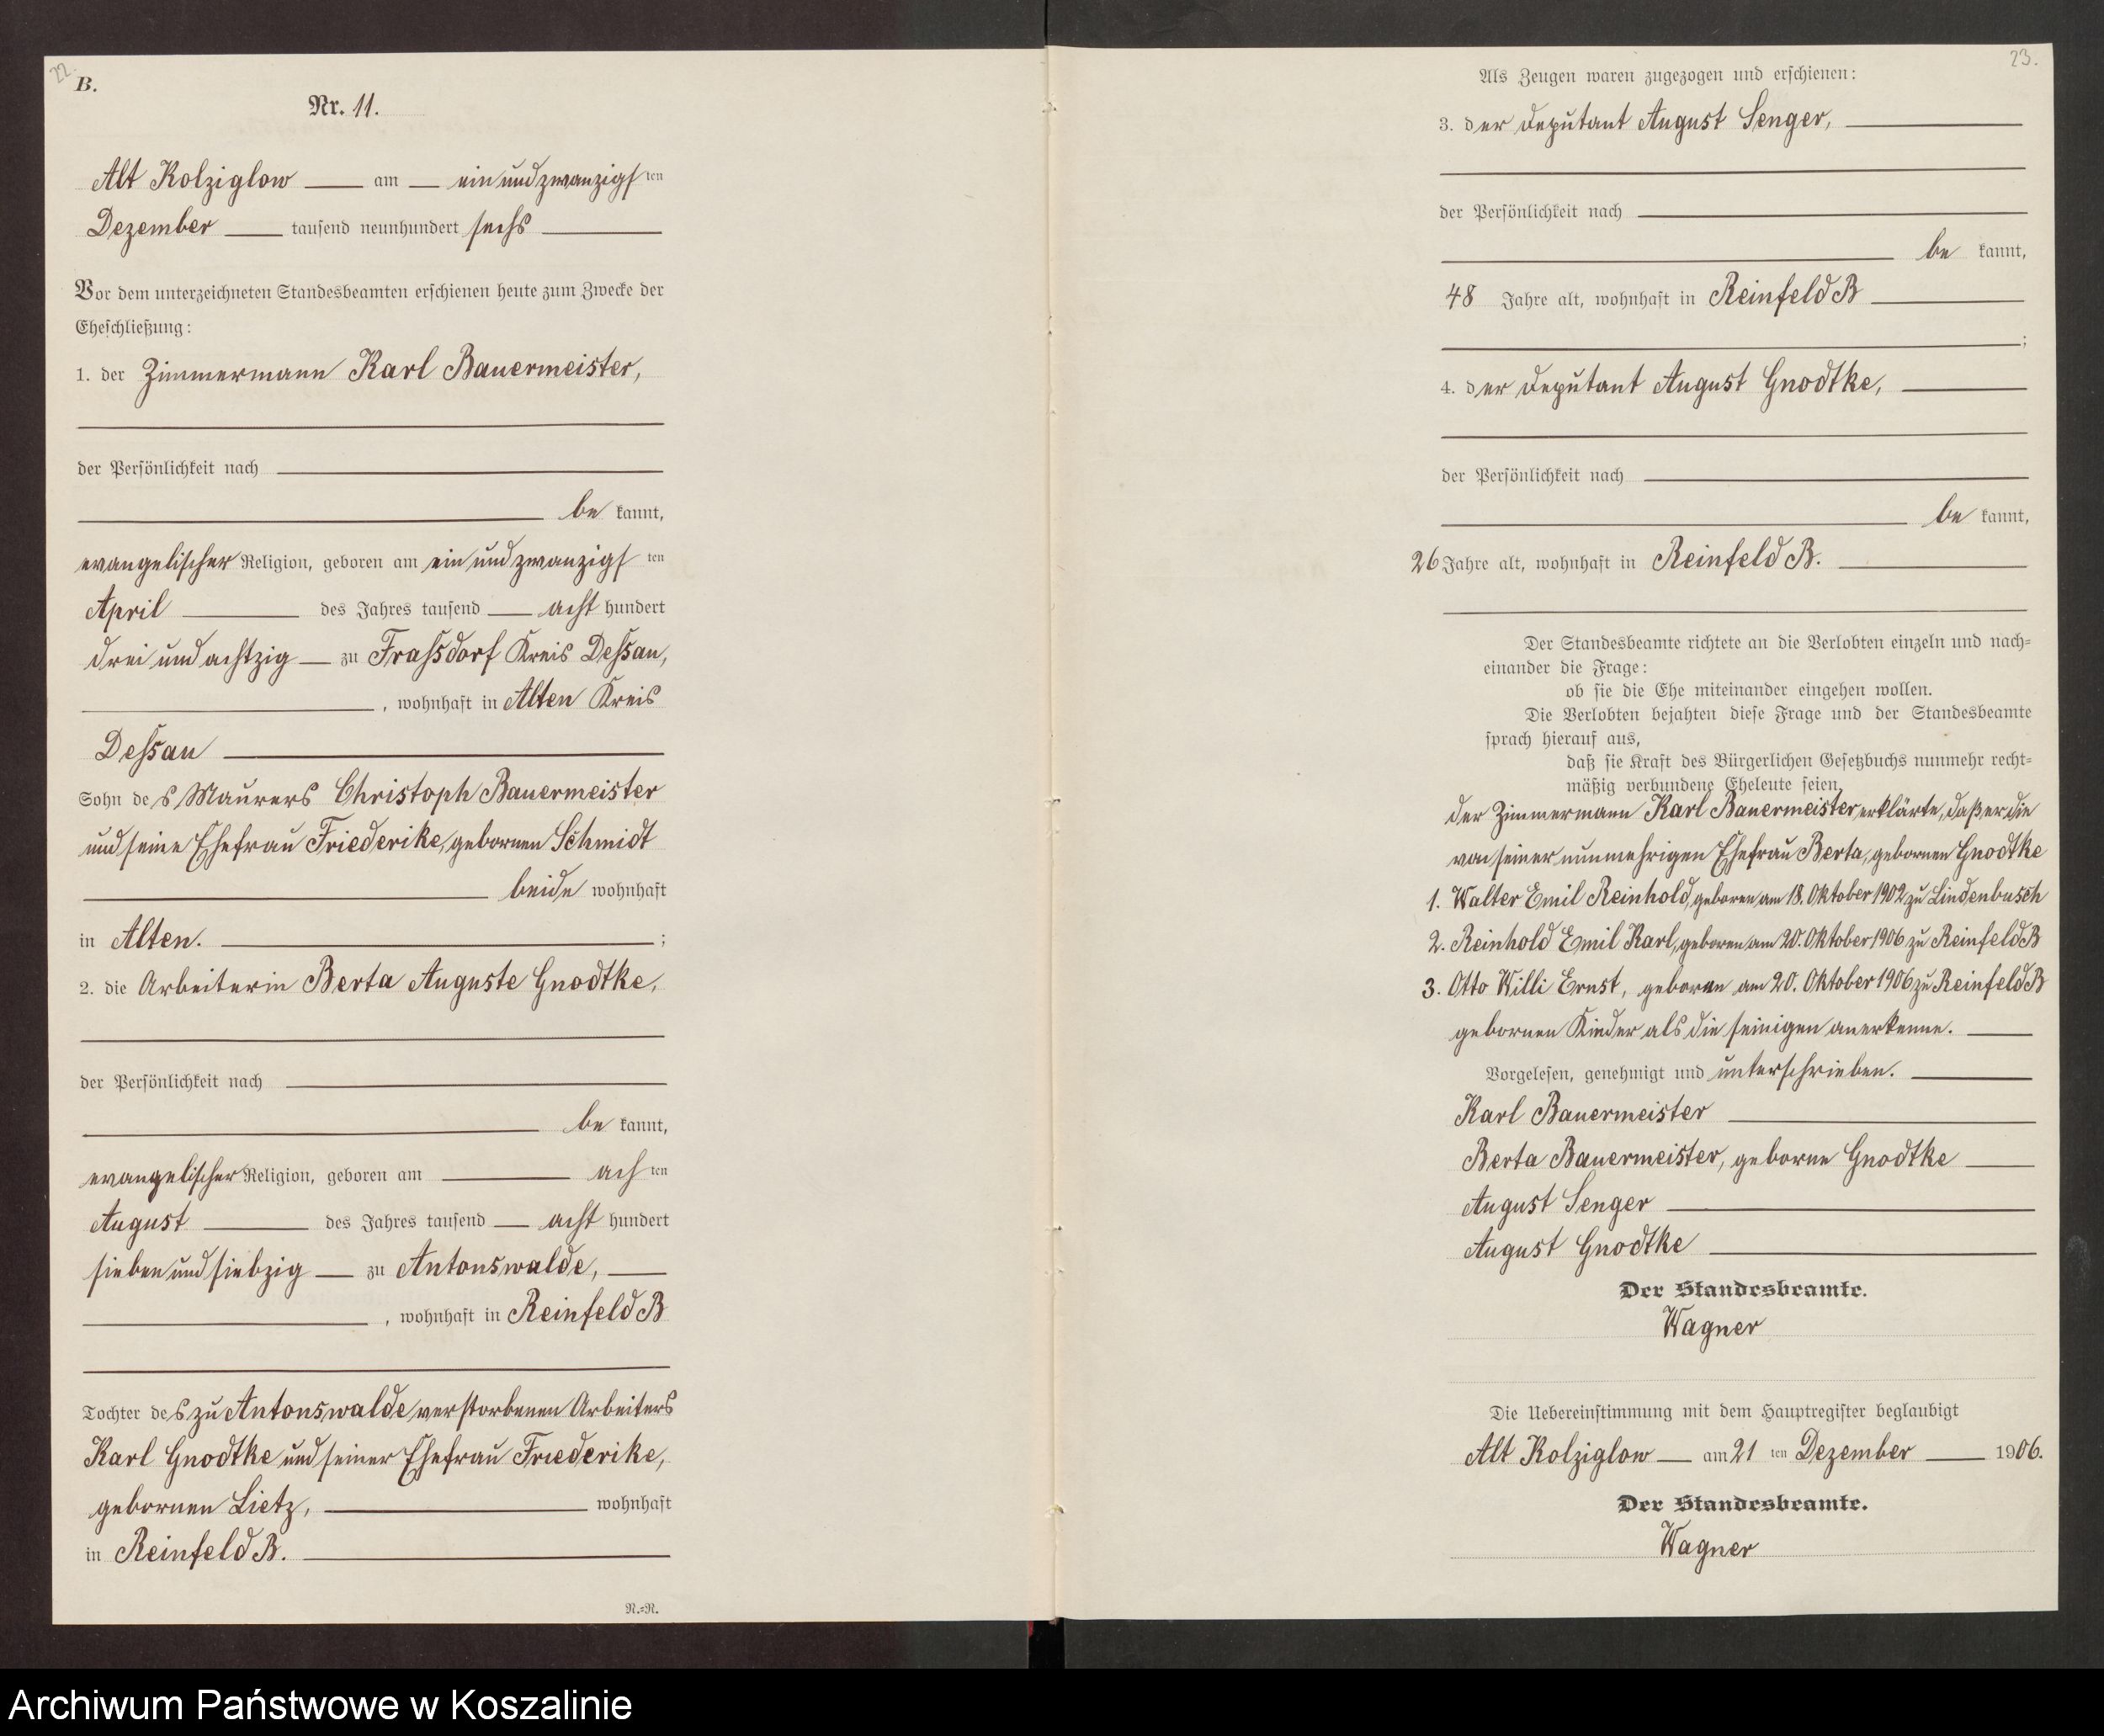 22.
B.
Nr. 11.
Alt Kolziglow am ein und zwanzigsten
Dezember tausend neunhundert sechs
Vor dem unterzeichneten Standesbeamten erschienen heute zum Zwecke der
Eheschließung:
1. der Zimmermann Karl Bauermeister,
der Persönlichkeit nach
be kannt,
evangelischer Religion, geboren am ein und zwanzigsten
April des Jahres tausend acht hundert
drei und achtzig zu Frassdorf Kreis Dessau,
, wohnhaft in Alten Kreis
Dessau
Sohn des Maurers Christoph Bauermeister
und seine Ehefrau Friederike, gebornen Schmidt
beide wohnhaft
in Alten. ;
2. die Arbeiterin Berta Auguste Gnodtke,
der Persönlichkeit nach
be kannt,
evangelischer Religion, geboren am achten
August des Jahres tausend acht hundert
sieben und siebzig zu Antonswalde,
, wohnhaft in Reinfeld B
Tochter des zu Antonswalde verstorbenen Arbeiters
Karl Gnodtke und seiner Ehefrau Friederike,
gebornen Lietz, wohnhaft
in Reinfeld B.
N.=N.
23.
Als Zeugen waren zugezogen und erschienen:
3. der Deputant August Senger,
der Persönlichkeit nach
be kannt,
48 Jahre alt, wohnhaft in Reinfeld B
;
4. der Deputant August Gnodtke,
der Persönlichkeit nach
be kannt,
26 Jahre alt, wohnhaft in Reinfeld B.
Der Standesbeamte richtete an die Verlobten einzeln und nach=
einander die Frage:
ob sie die Ehe miteinander eingehen wollen.
Die Verlobten bejahten diese Frage und der Standesbeamte
sprach hierauf aus,
daß sie Kraft des Bürgerlichen Gesetzbuchs nunmehr recht=
mäßig verbundene Eheleute seien.
der Zimmermann Karl Bauermeister erklärte, daß er die
von seiner nunmehrigen Ehefrau Berta, gebornen Gnodtke
1. Walter Emil Reinhold, geboren am 18. Oktober 1902 zu Lindenbusch
2. Reinhold Emil Karl, geboren am 20. Oktober 1906 zu Reinfeld B
3. Otto Willi Ernst, geboren am 20. Oktober 1906 zu Reinfeld B
gebornen Kinder als die seinigen anerkenne.
Vorgelesen, genehmigt und unterschrieben.
Karl Bauermeister
Berta Bauermeister, geborne Gnodtke
August Senger
August Gnodtke
Der Standesbeamte.
Wagner
Die Uebereinstimmung mit dem Hauptregister beglaubigt
Alt Kolziglow am 21 ten Dezember 1906.
Der Standesbeamte.
Wagner
Archiwum Państwowe w Koszalinie